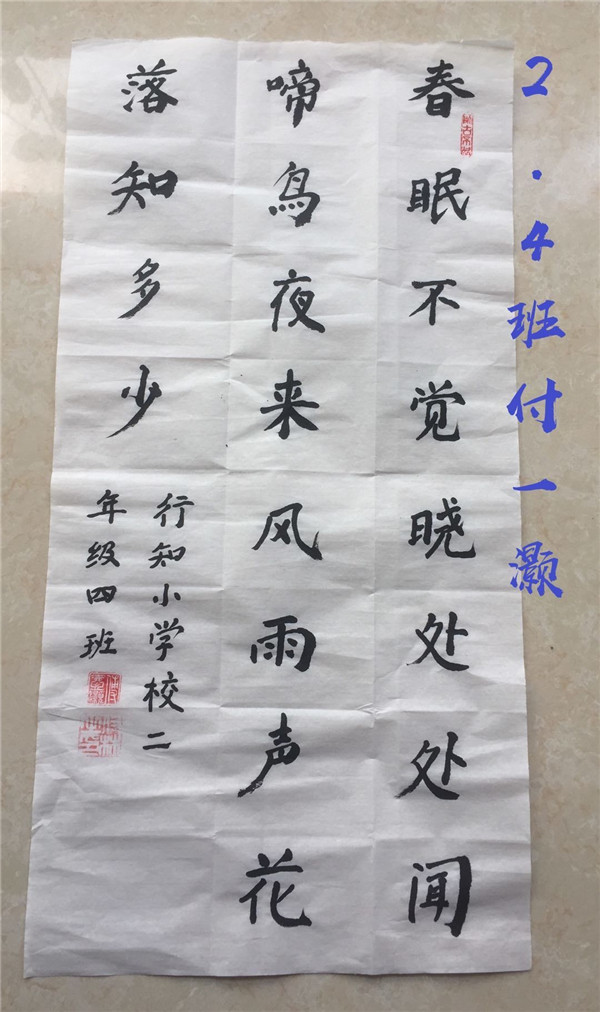 春眠不觉晓处处闻
啼鸟夜来风雨声花
落知多少
行知小学校二
年级四班
2.4班付一灏